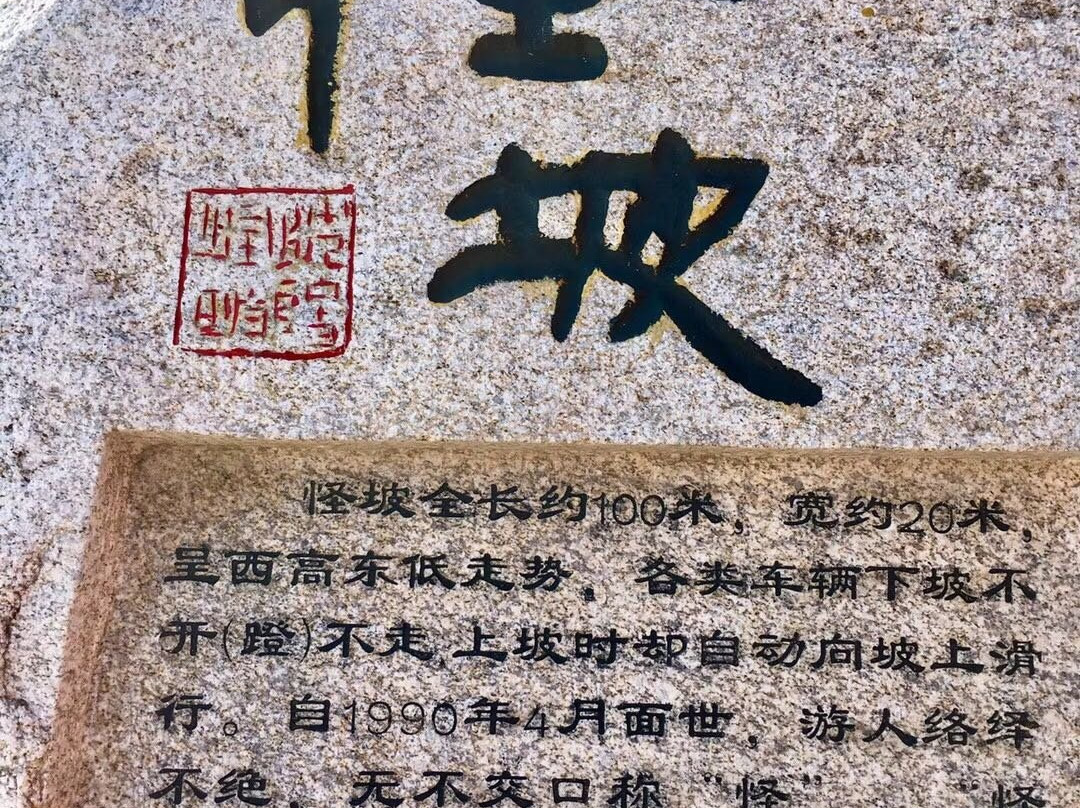 怪
坡
怪坡全长约100米，宽约20米，
呈西高东低走势，各类车辆下坡不
开(蹬)不走,上坡时却自动向坡上滑
行。自1990年4月面世，游人络绎
不绝，无不交口称“怪” “怪